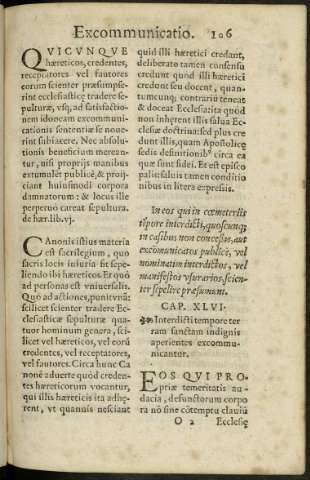 Excommunicatio. 106
QVICVNQVE
hæreticos, credentes,
receptatores vel fautores
eorum scienter præsumpse-
rint ecclesiasticę tradere se-
pulturæ, vsq; ad satisfactio-
nem idoneam excommuni-
cationis sententiæ se noue-
rint subiacere. Nec absolu-
tionis beneficium merean-
tur, nisi proprijs manibus
extumulēt publicè, & proij-
ciant huiusmodi corpora
damnatorum: & locus ille
perpetuò careat sepultura.
de hær. lib. vj.
CAnonis istius materia
est sacrilegium, quo
sacris locis iniuria fit sepe-
liendo ibi hæreticos. Et quò
ad personas est vniuersalis.
Quò ad actiones, punit vnā:
scilicet scienter tradere Ec-
clesiasticæ sepulturæ qua-
tuor hominum genera, sci-
licet vel hæreticos, vel eorū
credentes, vel receptatores,
vel fautores. Circa hunc Ca
nonē aduerte quòd creden-
tes hæreticorum vocantur,
qui illis hæreticis ita adhę-
rent, vt quamuis nesciant
quid illi hæretici credant,
deliberato tamen consensu
credunt quòd illi hæretici
credunt seu docent, quan-
tumcunq; contrario teneat
& doceat Ecclesia: ita quòd
non inhęrent illis salua Ec-
clesiæ doctrina: sed plus cre
dunt illis, quam Apostolicę
sedis definitionibꝰ circa ea
quæ sunt fidei. Et est episco
palis: saluis tamen conditio
nibus in litera expressis.
In eos qui in cœmeterijs
tēpore interdicti, quoscunq;
in casibus non concessis, aut
excōmunicatos publicè, vel
nominatim interdictos, vel
manifestos vsurarios, scien-
ter sepelire præsumunt.
CAP. XLVI.
Interdicti tempore ter
ram sanctam indignis
aperientes excommu-
nicantur.
EOS QVI PRO-
priæ temeritatis au-
dacia, defunctorum corpo
ra nō sine cōtemptu clauiū
O 2 Ecclesię